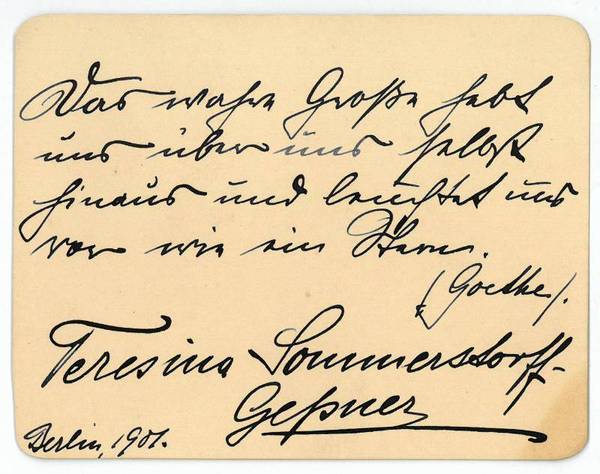 Das wahre Große hebt
uns über uns selbst
hinaus und leuchtet uns
vor wie ein Stern.
(Goethe).
Teresina Sommerstorff-
Geßner
Berlin, 1901.